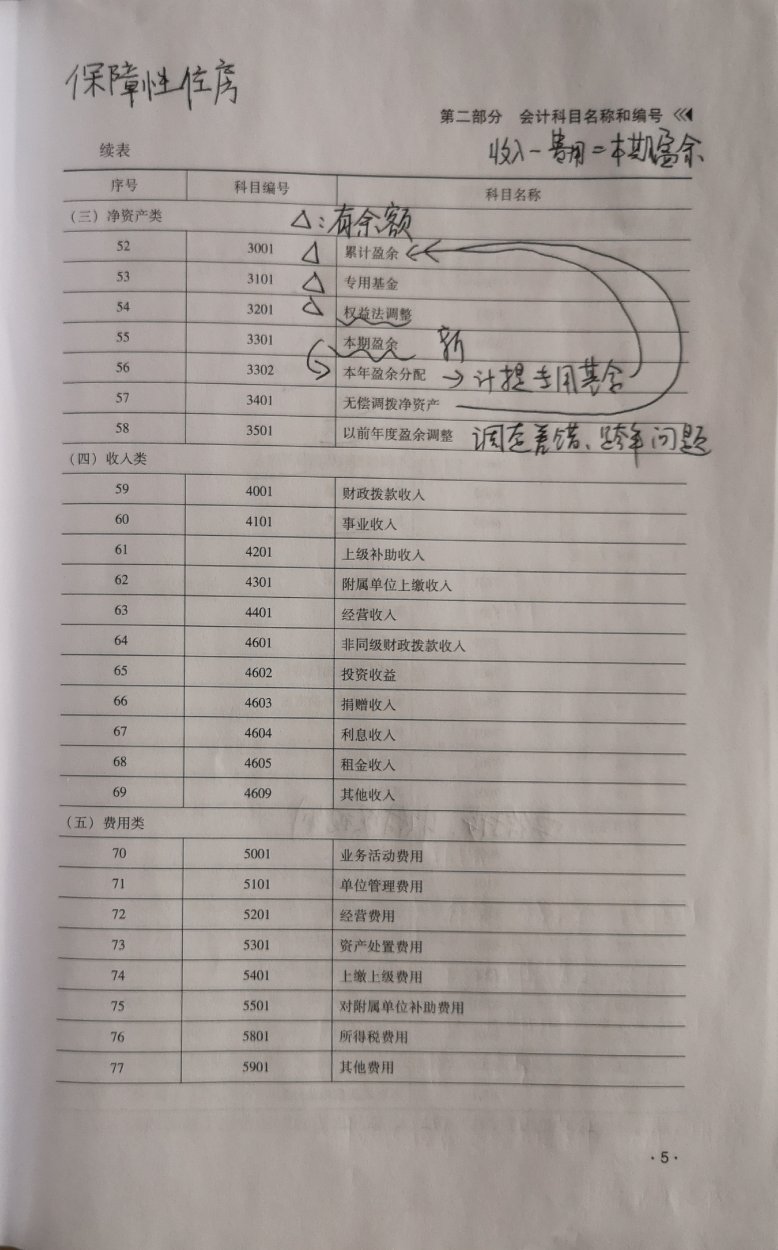 保障性住房
第二部分 会计科目名称和编号
收入-费用=本期盈余
续表
序号 科目编号 科目名称
(三)净资产类 △:有余额
52 3001 △ 累计盈余
53 3101 △ 专用基金
54 3201 △ 权益法调整
55 3301 本期盈余 新
56 3302 本年盈余分配 → 计提专用基金
57 3401 无偿调拨净资产
58 3501 以前年度盈余调整 调差错、跨年问题
(四)收入类
59 4001 财政拨款收入
60 4101 事业收入
61 4201 上级补助收入
62 4301 附属单位上缴收入
63 4401 经营收入
64 4601 非同级财政拨款收入
65 4602 投资收益
66 4603 捐赠收入
67 4604 利息收入
68 4605 租金收入
69 4609 其他收入
(五)费用类
70 5001 业务活动费用
71 5101 单位管理费用
72 5201 经营费用
73 5301 资产处置费用
74 5401 上缴上级费用
75 5501 对附属单位补助费用
76 5801 所得税费用
77 5901 其他费用
·5·